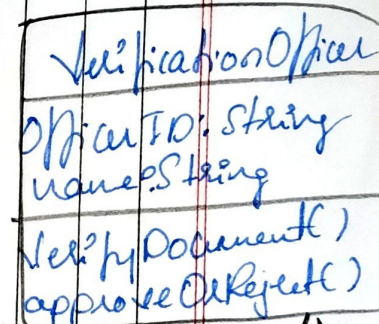 VerificationOfficer
OfficerID: String
name: String
VerifyDocument()
approveOrReject()